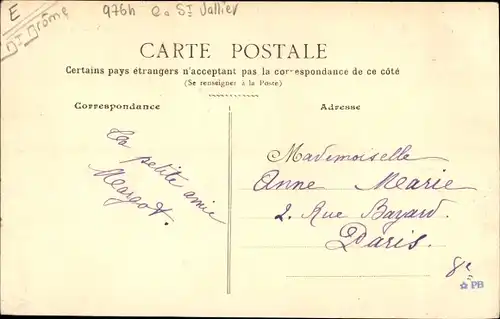 E
Dt Drôme
976h
C. St Vallier
CARTE POSTALE
Certains pays étrangers n'acceptent pas la correspondance de ce côté
(Se renseigner à la Poste)
Correspondance
Ta petite amie
Margot.
Adresse
Mademoiselle
Anne Marie
2. Rue Bayard.
Paris.
8e
PB